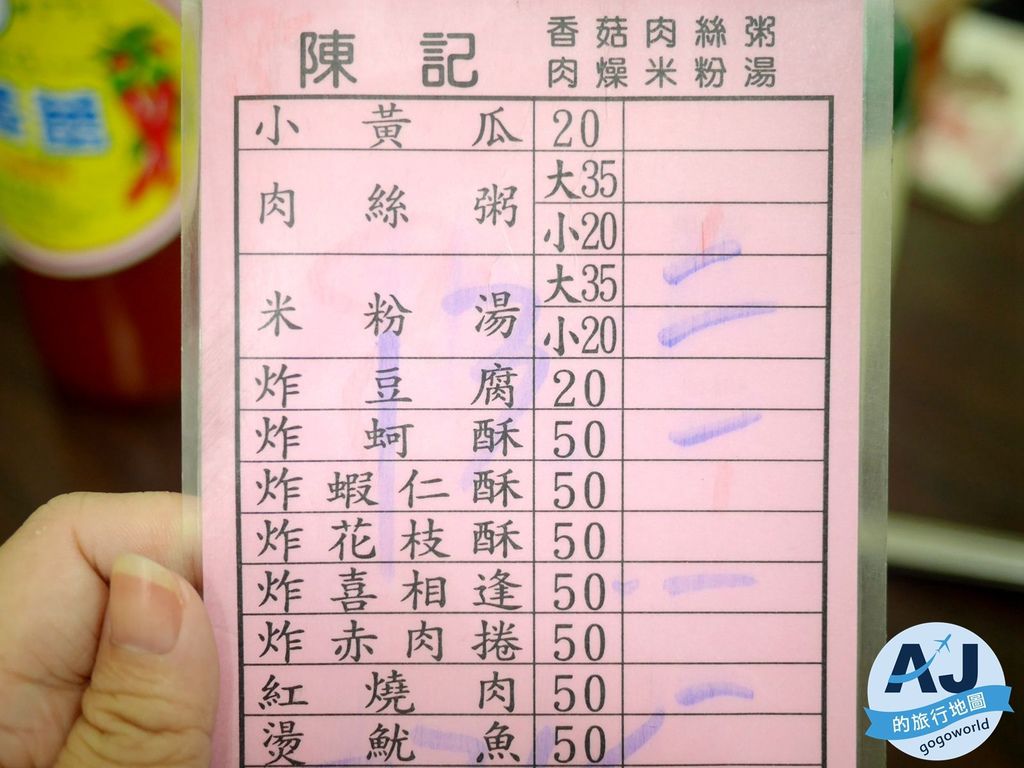 陳記
香菇肉絲粥
肉燥米粉湯
小黃瓜 20
肉絲粥 大35
小20
米粉湯 大35
小20
炸豆腐 20
炸蚵酥 50
炸蝦仁酥 50
炸花枝酥 50
炸喜相逢 50
炸赤肉捲 50
紅燒肉 50
燙魷魚 50
AJ
的旅行地圖
gogoworld